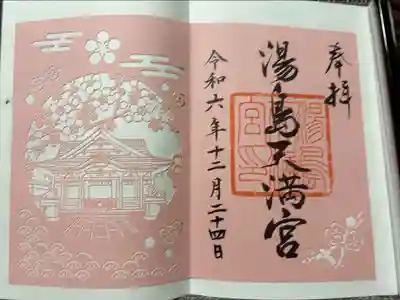 奉拝
湯島天満宮
令和六年十二月二十四日